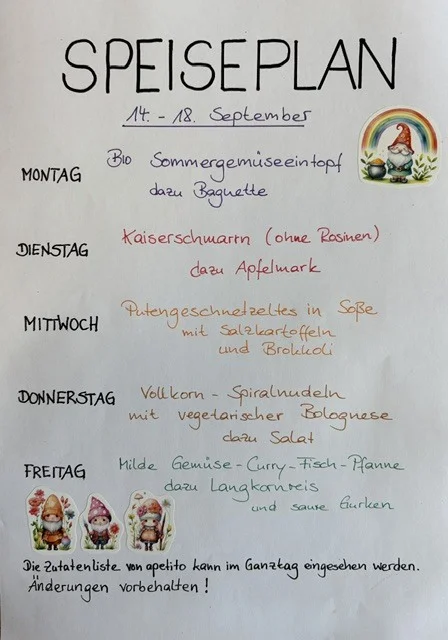 SPEISEPLAN
14. - 18. September
MONTAG
Bio Sommergemüseeintopf
dazu Baguette
DIENSTAG
Kaiserschmarrn (ohne Rosinen)
dazu Apfelmark
MITTWOCH
Putengeschnetzeltes in Soße
mit Salzkartoffeln
und Brokkoli
DONNERSTAG
Vollkorn - Spiralnudeln
mit vegetarischer Bolognese
dazu Salat
FREITAG
Milde Gemüse-Curry-Fisch-Pfanne
dazu Langkornreis
und saure Gurken
Die Zutatenliste von apetito kann im Ganztag eingesehen werden.
Änderungen vorbehalten!